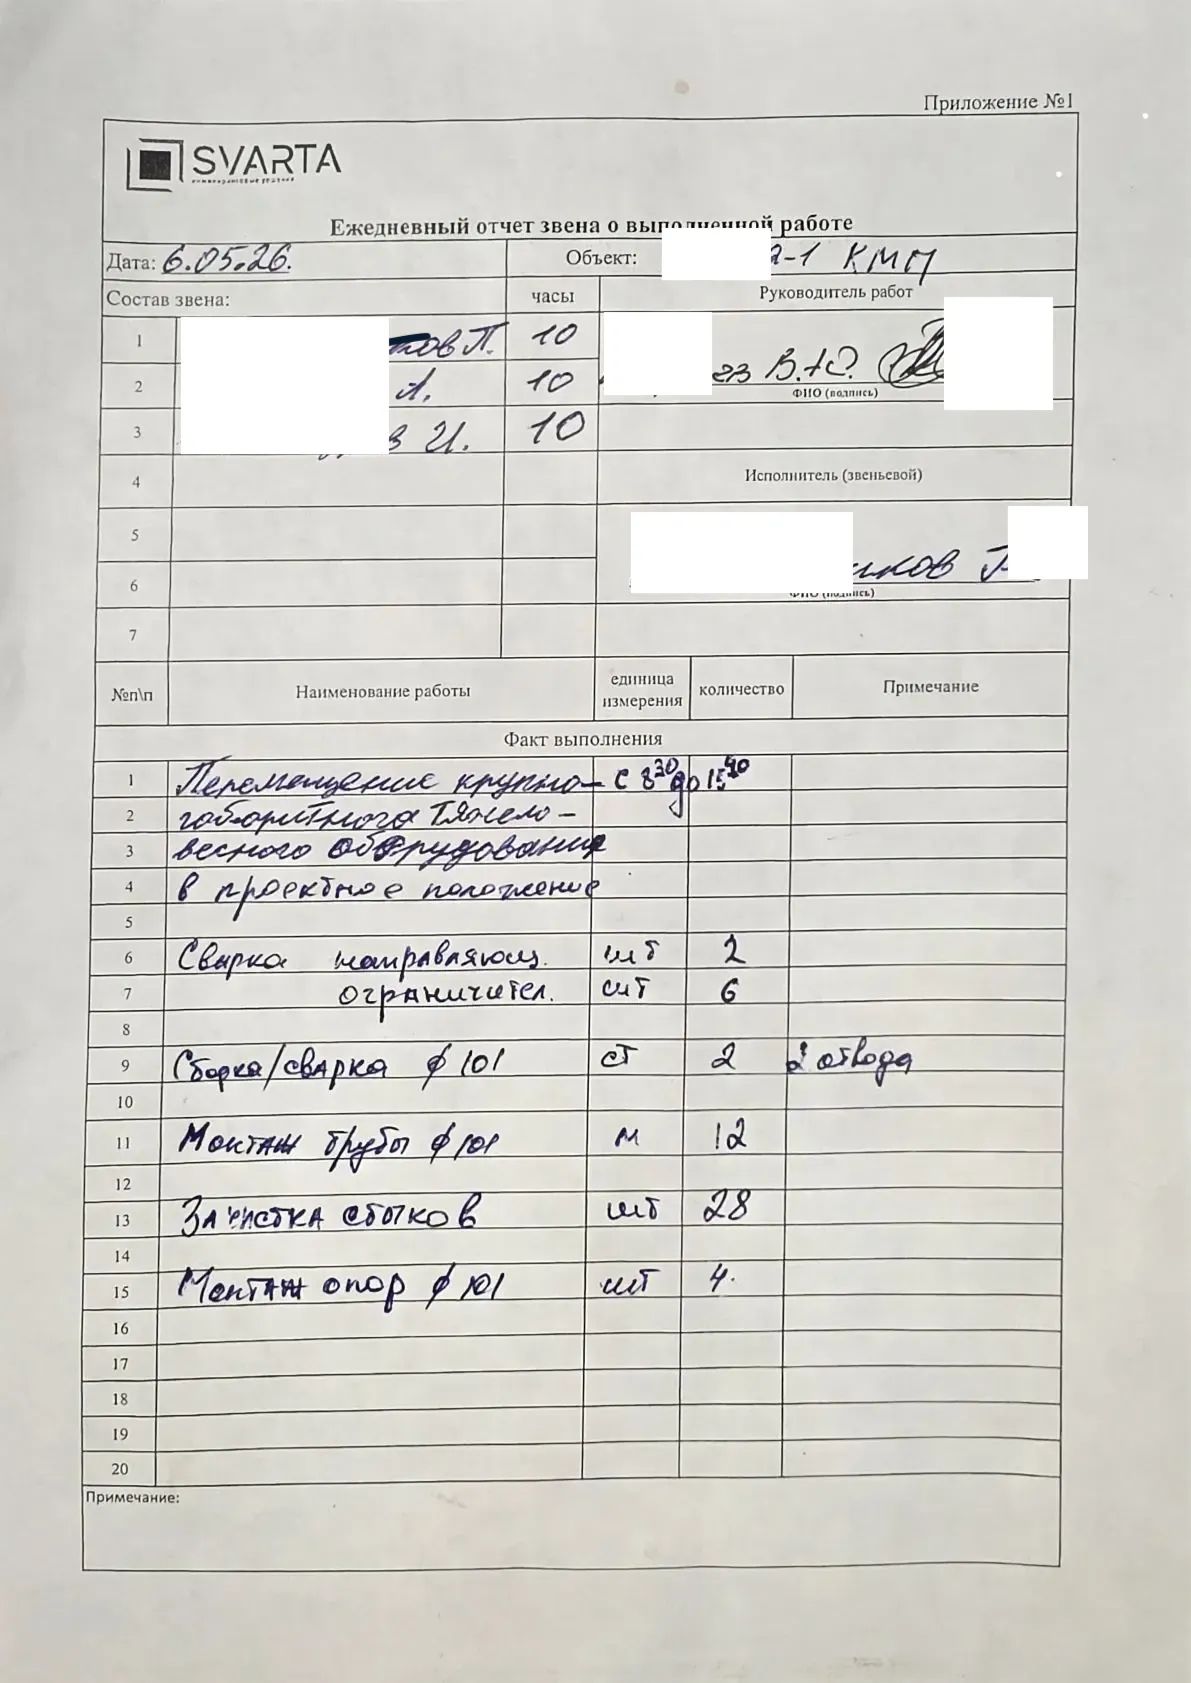 Приложение №1
SVARTA
Ежедневный отчет звена о выполненной работе
Дата: 6.05.26. Объект: 2-1 КМП
Состав звена: часы Руководитель работ
1 ков П. 10
2 А. 10 ез В.Ю.
ФИО (подпись)
3 в И. 10
4 Исполнитель (звеньевой)
5
иков П
6
ФИО (подпись)
7
№п\п Наименование работы единица измерения количество Примечание
Факт выполнения
1 Перемещение крупно- с 8³⁰ до 15⁴⁰
2 габаритного тяжело-
3 весного оборудования
4 в проектное положение
5
6 Сварка направляющ. шт 2
7 ограничител. шт 6
8
9 Сборка/сварка ф 101 ст 2 2 отвода
10
11 Монтаж трубы ф 101 м 12
12
13 Зачистка стыков шт 28
14
15 Монтаж опор ф 101 шт 4.
16
17
18
19
20
Примечание: